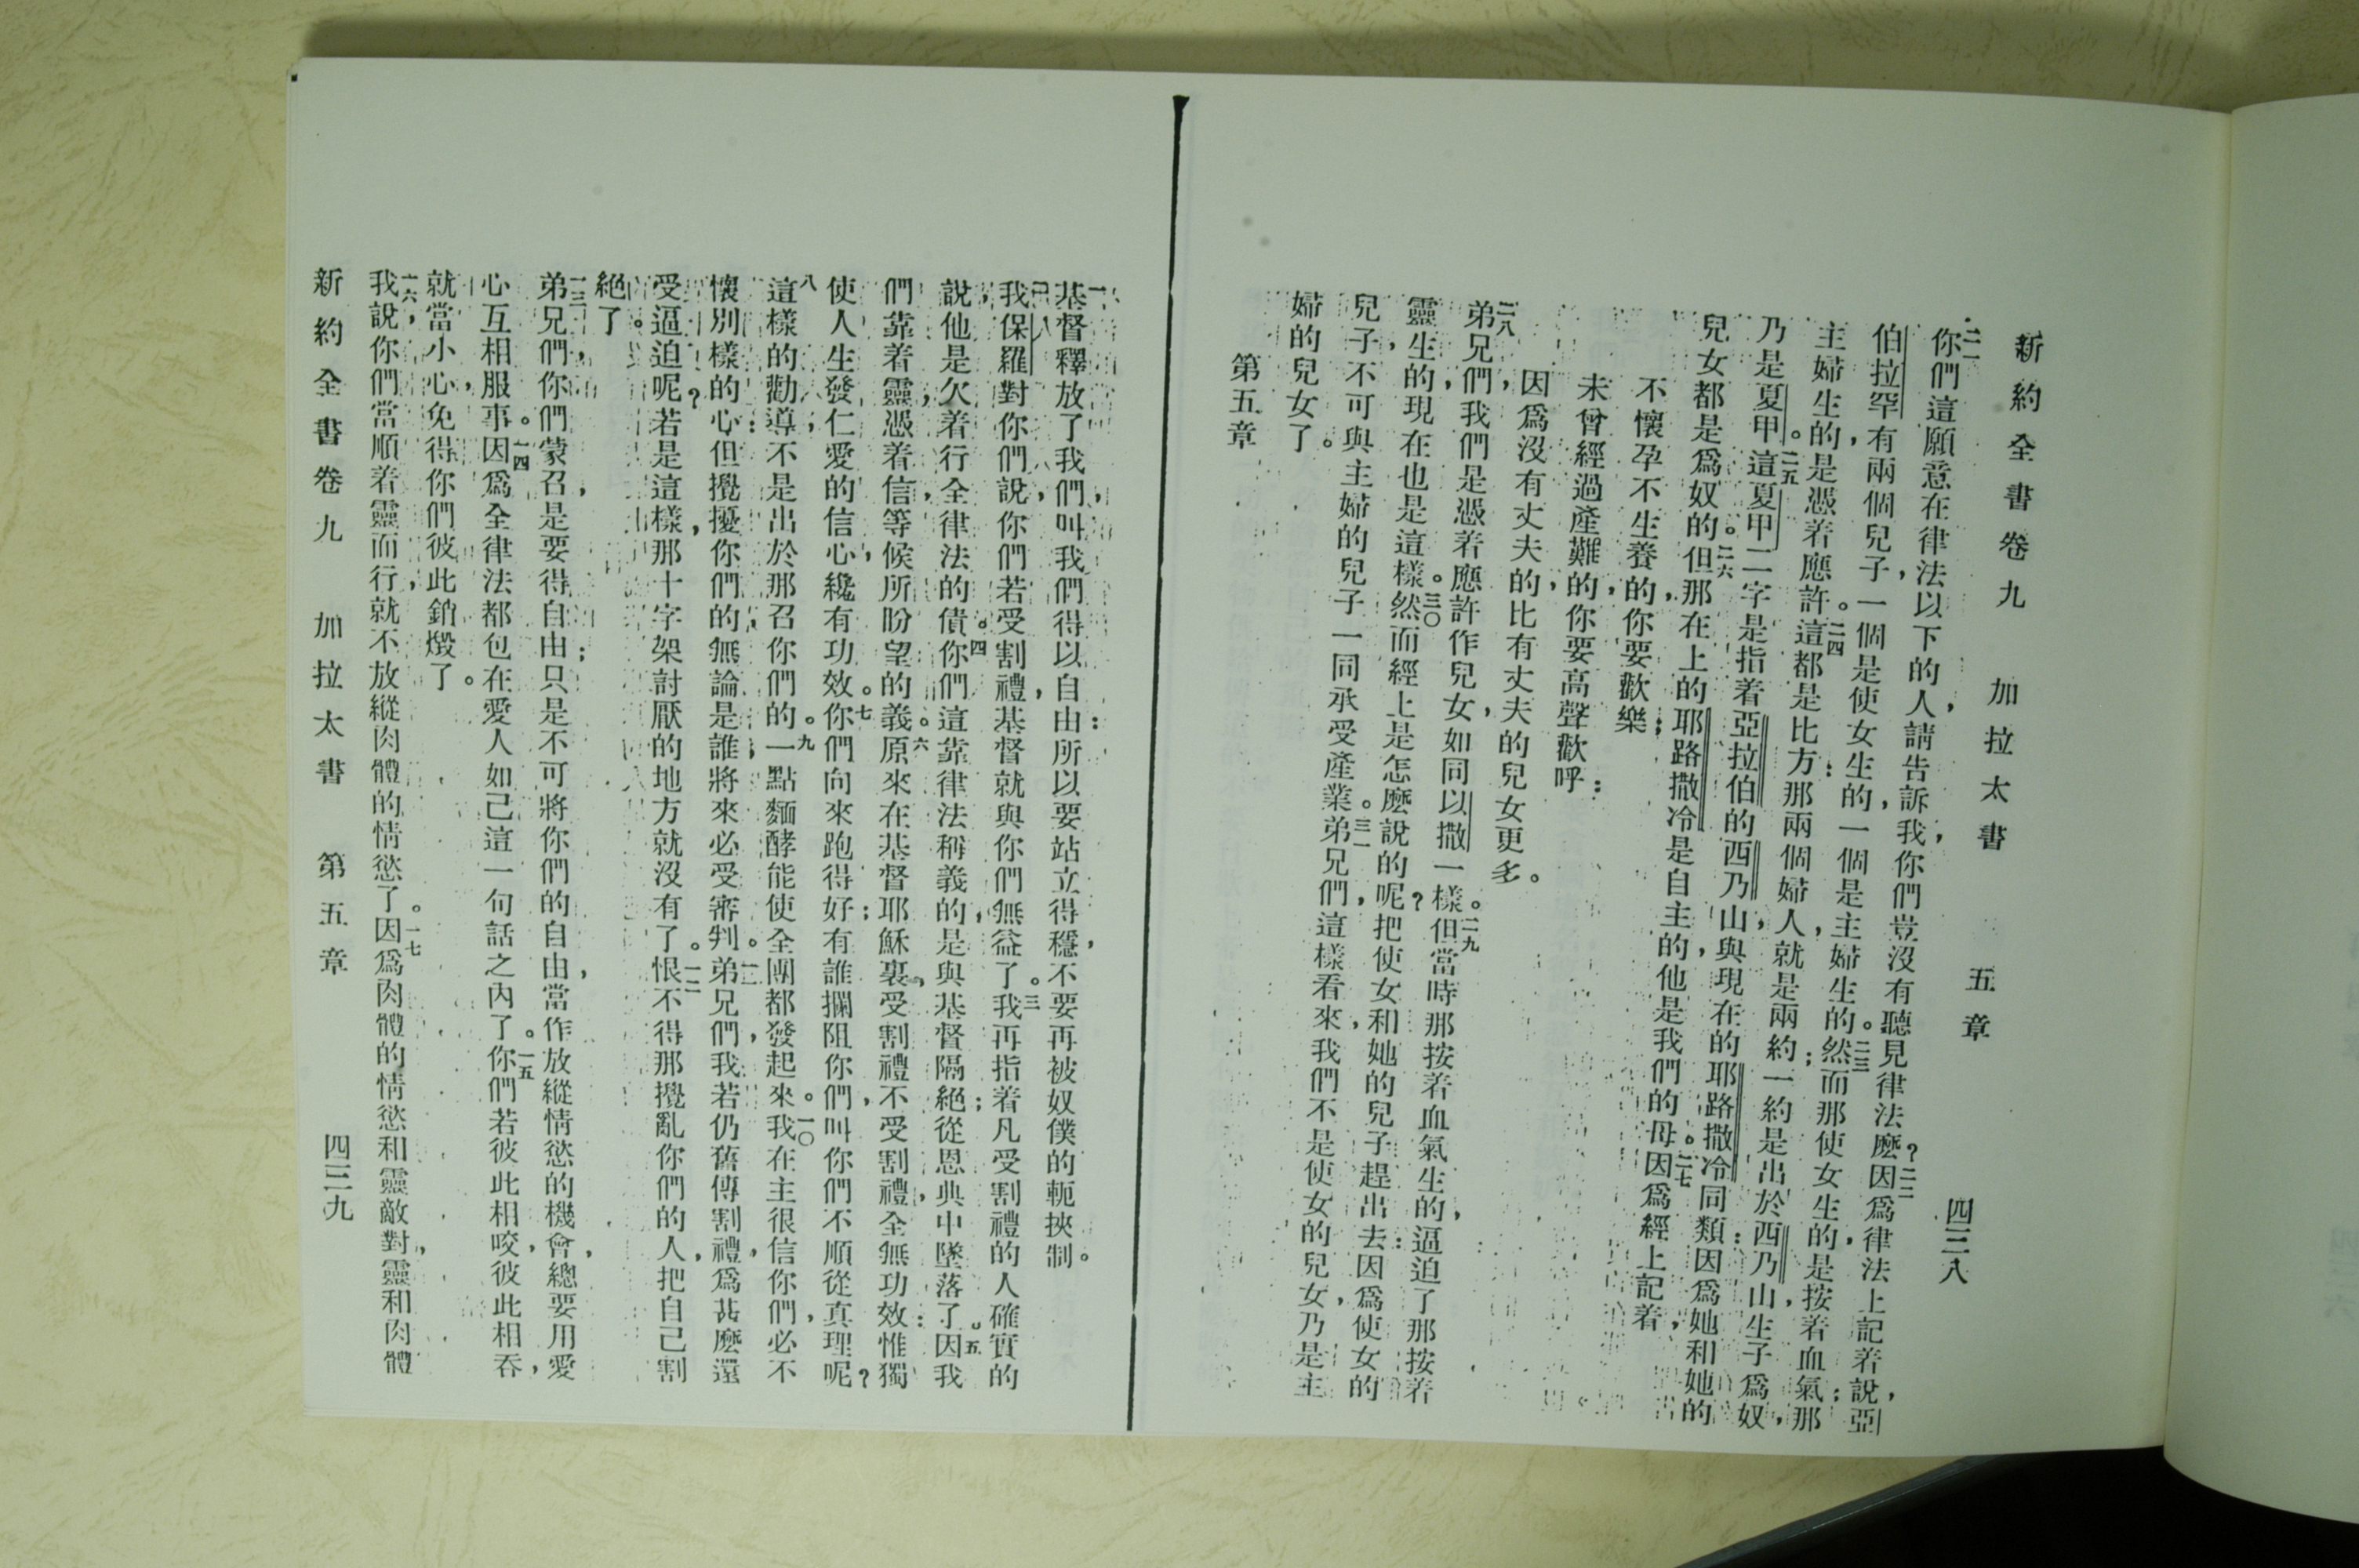 新約全書卷九 加拉太書 五章 四三八
二一你們這願意在律法以下的人，請告訴我，你們豈沒有聽見律法麼？二二因爲律法上記着說，亞
伯拉罕有兩個兒子，一個是使女生的，一個是主婦生的。二三然而那使女生的，是按着血氣；那
主婦生的，是憑着應許。二四這都是比方：那兩個婦人，就是兩約；一約是出於西乃山，生子爲奴，
乃是夏甲。二五這夏甲二字是指着亞拉伯的西乃山，與現在的耶路撒冷同類：因爲她和她的
兒女都是爲奴的。二六但那在上的耶路撒冷是自主的，他是我們的母。二七因爲經上記着，
不懷孕不生養的，你要歡樂；
未曾經過產難的，你要高聲歡呼：
因爲沒有丈夫的，比有丈夫的兒女更多。
二八弟兄們，我們是憑着應許作兒女，如同以撒一樣。二九但當時那按着血氣生的，逼迫了那按着
靈生的，現在也是這樣。三〇然而經上是怎麼說的呢？把使女和她的兒子趕出去：因爲使女的
兒子，不可與主婦的兒子一同承受產業。三一弟兄們，這樣看來，我們不是使女的兒女，乃是主
婦的兒女了。
第五章
一基督釋放了我們，叫我們得以自由：所以要站立得穩，不要再被奴僕的軛挾制。
二我保羅對你們說，你們若受割禮，基督就與你們無益了。三我再指着凡受割禮的人確實的
說，他是欠着行全律法的債。四你們這靠律法稱義的，是與基督隔絕；從恩典中墜落了。五因我
們靠着靈，憑着信，等候所盼望的義。六原來在基督耶穌裏，受割禮不受割禮，全無功效：惟獨
使人生發仁愛的信心，纔有功效。七你們向來跑得好；有誰攔阻你們，叫你們不順從真理呢？
八這樣的勸導，不是出於那召你們的。九一點麵酵能使全團都發起來。一〇我在主很信你們，必不
懷別樣的心：但攪擾你們的，無論是誰，將來必受審判。一一弟兄們，我若仍舊傳割禮，爲甚麼還
受逼迫呢？若是這樣，那十字架討厭的地方就沒有了。一二恨不得那攪亂你們的人，把自己割
絕了。
一三弟兄們，你們蒙召，是要得自由；只是不可將你們的自由，當作放縱情慾的機會，總要用愛
心互相服事。一四因爲全律法都包在愛人如己這一句話之內了。一五你們若彼此相咬，彼此相吞，
就當小心，免得你們彼此銷燬了。
一六我說，你們當順着靈而行，就不放縱肉體的情慾了。一七因爲肉體的情慾和靈敵對，靈和肉體
新約全書卷九 加拉太書 第五章 四三九